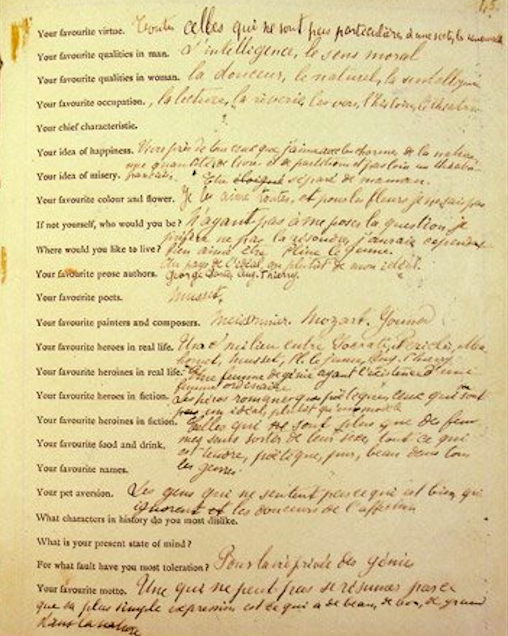 45.
Your favourite virtue. Toutes celles qui ne sont pas particulières à une secte, les universelles
Your favourite qualities in man. L'intelligence, le sens moral
Your favourite qualities in woman. la douceur, le naturel, l'intelligence
Your favourite occupation. , la lecture, la rêverie, les vers, l'histoire, le théâtre
Your chief characteristic.
Your idea of happiness. Vivre près de tous ceux que j'aime avec les charmes de la nature
une quantité de livres et de partitions, et pas loin un théâtre
français.
Your idea of misery. Etre éloigné séparé de maman.
Your favourite colour and flower. Je les aime toutes, et pour les fleurs je ne sais pas
If not yourself, who would you be? N'ayant pas à me poser la question je
préfère ne pas la résoudre, j'aurais cependant
bien aimé être Pline le jeune.
Where would you like to live? Au pays de l'idéal, ou plutôt de mon idéal.
Your favourite prose authors. George Sand, Aug. Thierry.
Your favourite poets. Musset.
Your favourite painters and composers. Meissonnier. Mozart. Gounod
Your favourite heroes in real life. Un milieu entre Socrate, Périclès, Mahomet,
Musset, Pl. le jeune, Aug. Thierry
Your favourite heroines in real life. Une femme de génie ayant l'existence d'une
femme ordinaire
Your favourite heroes in fiction. Les héros romanesques poétiques ceux qui sont
un idéal, plutôt qu'un modèle
Your favourite heroines in fiction. Celles qui sont plus que des femmes
sans sortir de leur sexe, tout ce qui
est tendre, poétique, pur, beau dans tous
les genres.
Your favourite food and drink.
Your favourite names.
Your pet aversion. Les gens qui ne sentent pas ce qui est bien, qui
ignorent les douceurs de l'affection
What characters in history do you most dislike.
What is your present state of mind?
For what fault have you most toleration? Pour la vie privée des génies
Your favourite motto. Une qui ne peut pas se résumer parce
que sa plus simple expression est ce qui a de beau, de bon, de grand
dans la nature